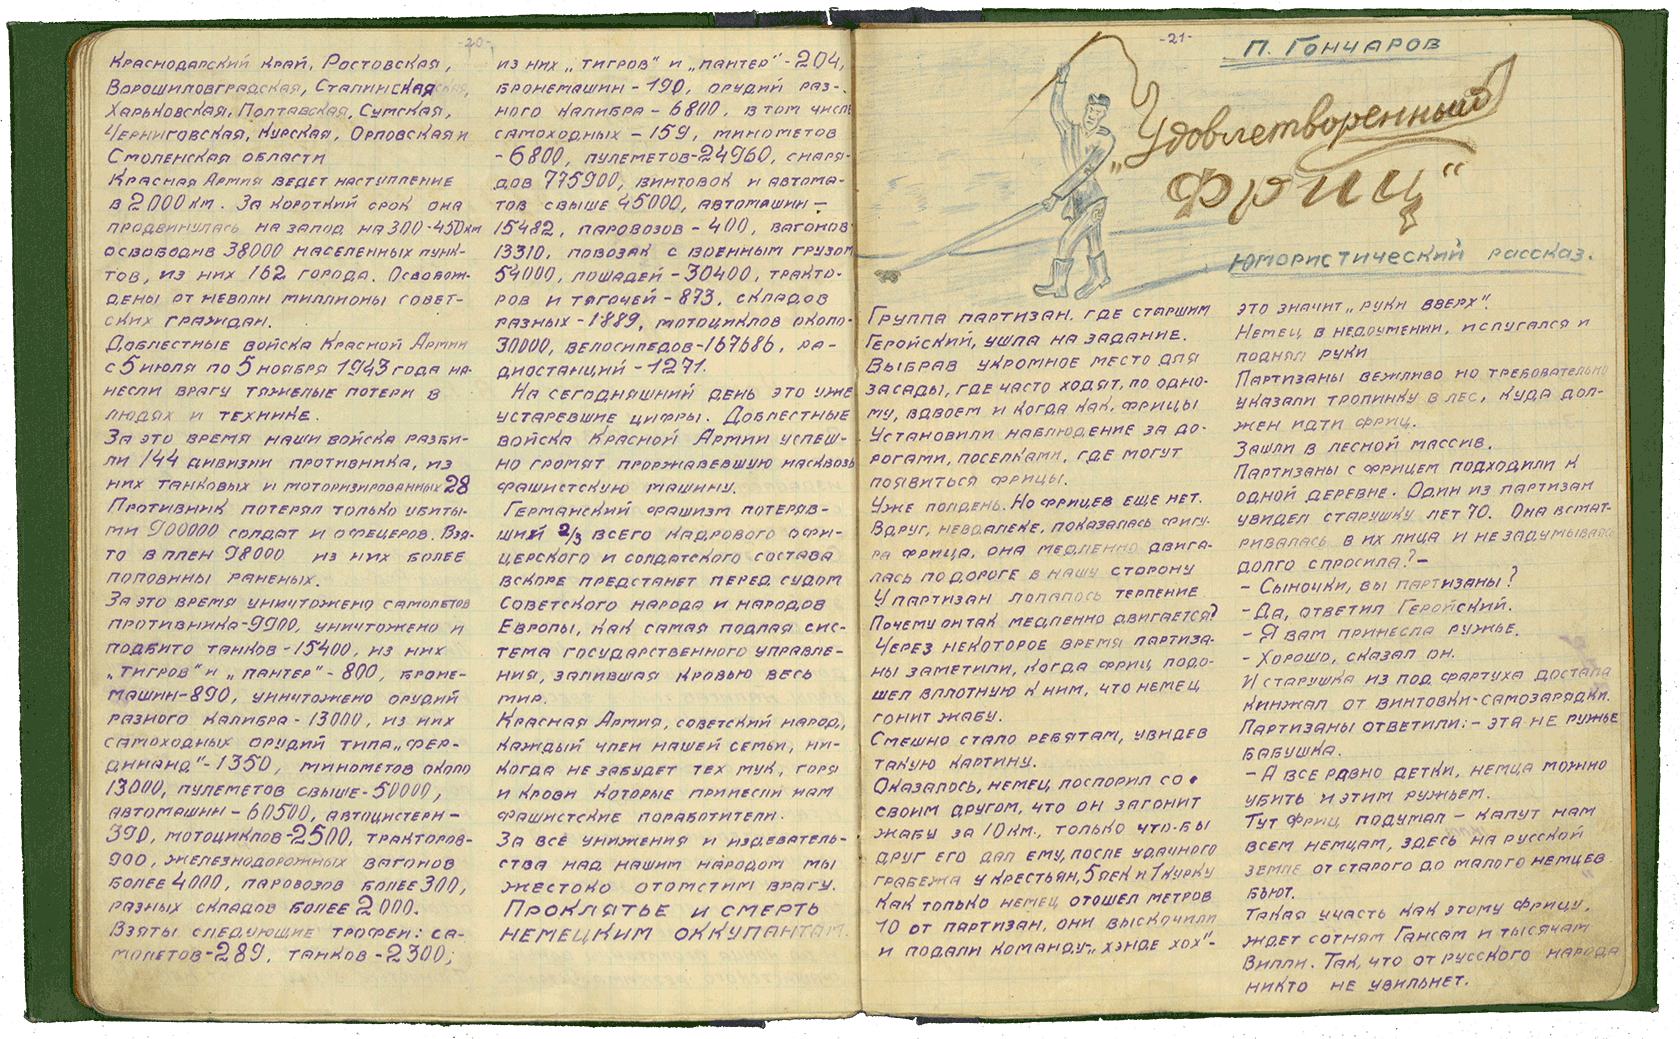 -20-
Краснодарский край, Ростовская,
Ворошиловградская, Сталинская
Харьковская, Полтавская, Сумская,
Черниговская, Курская, Орловская и
Смоленская области
Красная Армия ведет наступление
в 2000 км. За короткий срок она
продвинулась на запад на 300-450 км
освободив 38000 населенных пунк-
тов, из них 162 города. Освобож-
дены от неволи миллионы совет-
ских граждан.
Доблестные войска Красной Армии
с 5 июля по 5 ноября 1943 года на-
несли врагу тяжелые потери в
людях и технике.
За это время наши войска разби-
ли 144 дивизии противника, из
них танковых и моторизированных 28
Противник потерял только убиты-
ми 900000 солдат и офецеров. Взя-
то в плен 98000 из них более
половины раненых.
За это время уничтожено самолетов
противника-9900, уничтожено и
подбито танков-15400, из них
„тигров" и „пантер"-800, броне-
машин-890, уничтожено орудий
разного калибра-13000, из них
самоходных орудий типа „фер-
динанд"-1350, минометов около
13000, пулеметов свыше-50000,
автомашин-60500, автоцистерн-
390, мотоциклов-2500, тракторов-
900, железнодорожных вагонов
более 4000, паровозов более 300,
разных складов более 2000.
Взяты следующие трофеи: са-
молетов-289, танков-2300;
из них „тигров" и „пантер"-204,
бронемашин-190, орудий раз-
ного калибра-6800, в том числе
самоходных-159, минометов
-6800, пулеметов-24960, снаря-
дов 775900, винтовок и автома-
тов свыше 45000, автомашин-
15482, паровозов-400, вагонов
13310, повозак с военным грузом
54000, лошадей-30400, тракто-
ров и тягочей-873, складов
разных-1889, мотоциклов около-
30000, велосипедов-167686, ра-
диостанций-1271.
На сегодняшний день это уже
устаревшие цифры. Доблестные
войска Красной Армии успеш-
но громят проржавевшую насквозь
фашистскую машину.
Германский фашизм потеряв-
ший 2/3 всего кадрового офи-
церского и солдатского состава
вскоре предстанет перед судом
Советского народа и народов
Европы, как самая подлая сис-
тема государственного управле-
ния, залившая кровью весь
мир.
Красная Армия, советский народ,
каждый член нашей семьи, ни-
когда не забудет тех мук, горя
и крови которые принесли нам
фашистские поработители.
За все унижения и издеватель-
ства над нашим народом мы
жестоко отомстим врагу.
Проклятье и смерть
немецким оккупантам.
-21-
П. Гончаров
„Удовлетворенный
Фриц"
Юмористический рассказ.
Группа партизан, где старшим
Геройский, ушла на задание.
Выбрав укромное место для
засады, где часто ходят, по одно-
му, вдвоем и когда как, фрицы
Установили наблюдение за до-
рогами, поселками, где могут
появиться фрицы.
Уже полдень. Но фрицев еще нет.
Вдруг, невдалеке, показалась фигу-
ра фрица, она медленно двига-
лась по дороге в нашу сторону
У партизан лопалось терпение
Почему он так медленно двигается?
Через некоторое время партиза-
ны заметили, когда фриц подо-
шел вплотную к ним, что немец
гонит жабу.
Смешно стало ребятам, увидев
такую картину.
Оказалось, немец поспорил со
своим другом, что он загонит
жабу за 10 км., только что-бы
друг его дал ему, после удачного
грабежа у крестьян, 5 яек и 1 курку
Как только немец отошел метров
10 от партизан, они выскочили
и подали команду-„хэнде хох"-
это значит „руки вверх".
Немец в недоумении, испугался и
поднял руки
Партизаны вежливо но требовательно
указали тропинку в лес, куда дол-
жен идти фриц.
Зашли в лесной массив.
Партизаны с фрицем подходили к
одной деревне. Один из партизан
увидел старушку лет 70. Она всмат-
ривалась в их лица и не задумываясь
долго спросила?-
- Сыночки, вы партизаны?
- Да, ответил Геройский.
- Я вам принесла ружье.
- Хорошо, сказал он.
И старушка из под фартуха достала
кинжал от винтовки-самозарядки.
Партизаны ответили:- эта не ружье
бабушка.
- А все равно детки, немца можно
убить и этим ружьем.
Тут фриц подумал - капут нам
всем немцам, здесь на русской
земле от старого до малого немцев
бьют.
Такая участь как этому фрицу,
ждет сотням Гансам и тысячам
Вилли. Так, что от русского народа
никто не увильнет.